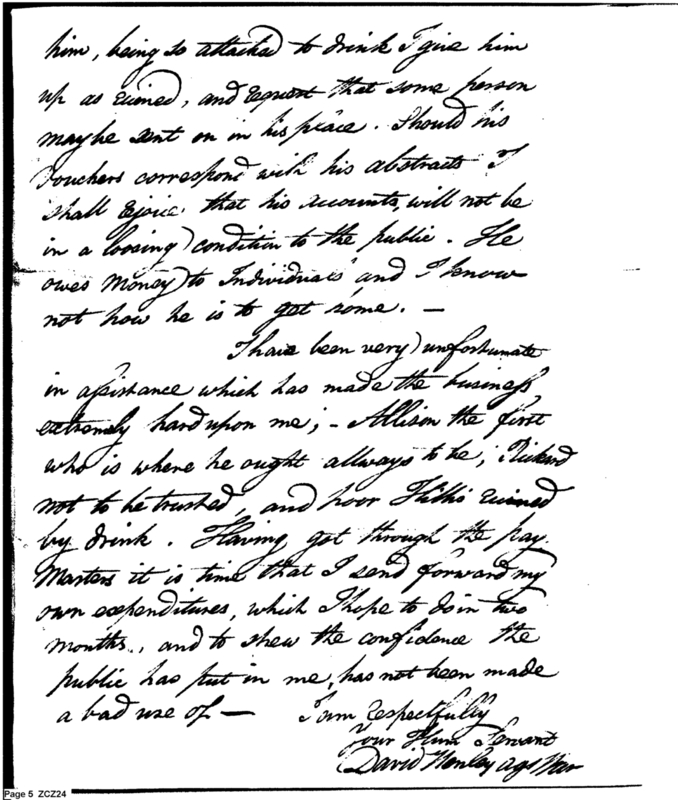 him, being so attached to drink I give him
up as ruined, and request that some person
may be sent on in his place. Should his
Vouchers correspond with his abstracts I
shall rejoice that his accounts, will not be
in a loosing condition to the public. He
owes money to Individuals and I know
not how he is to get some. —
I have been very unfortunate
in assistance which has made the business
extremely hard upon me; - Allison the first
who is where he ought allways to be; Rickard
not to be trusted, and poor ruined
by drink. Having got through the pay
Masters it is time that I send forward my
own expenditures, which I hope to do in two
months, and to shew the confidence the
public has put in me, has not been made
a bad use of — I am respectfully
Your Hum Servant
David Henley Agt War
Page 5 ZCZ24